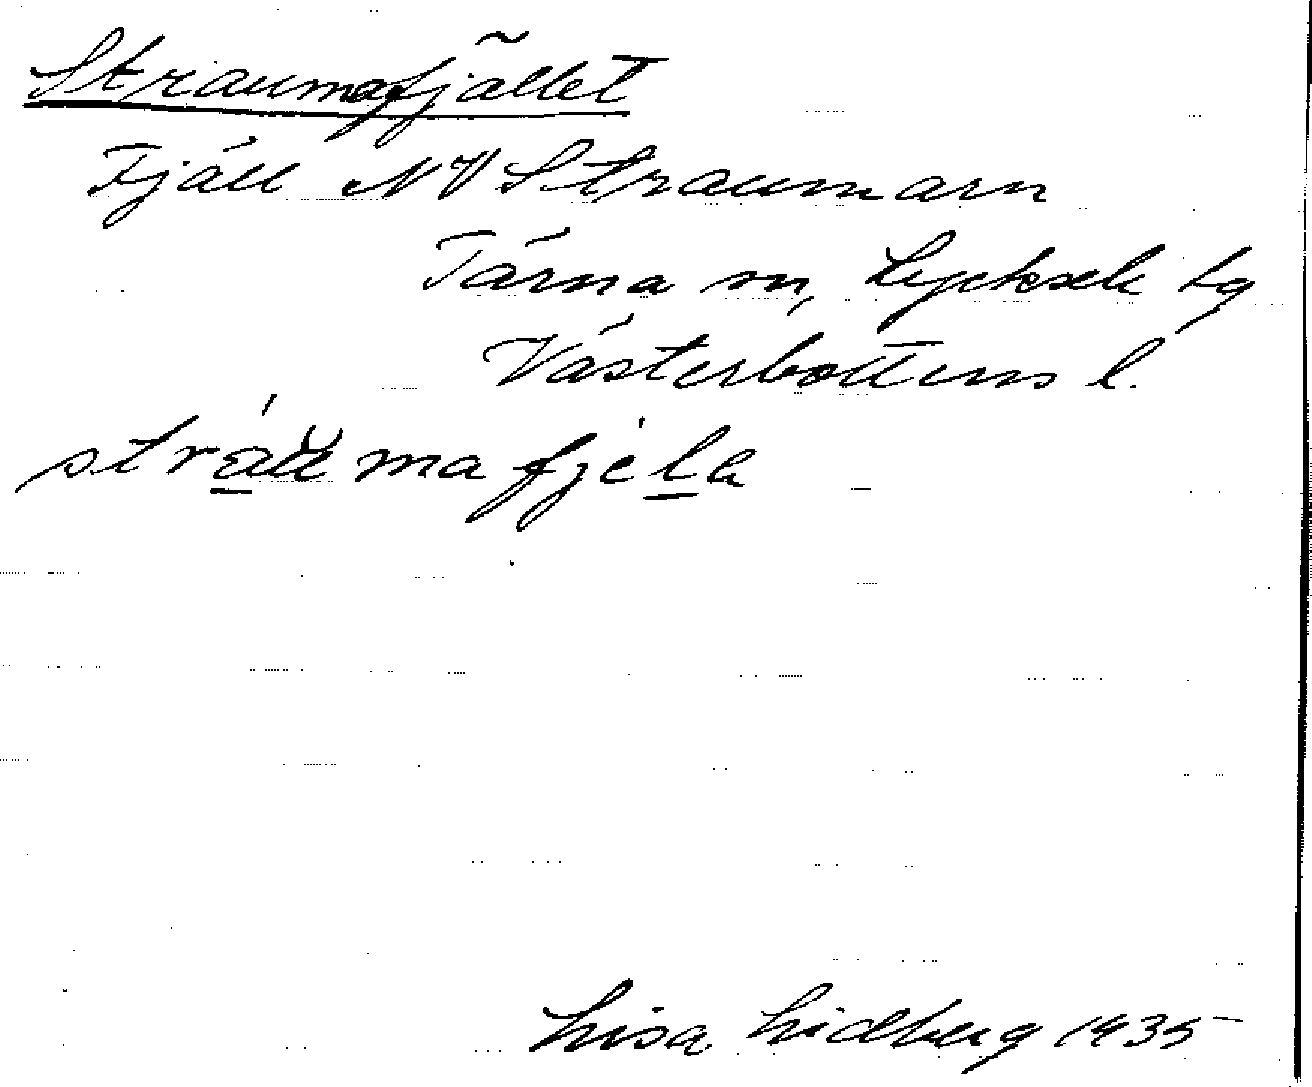 Straumafjället
Fjäll NV Straumarn
Tärna sn, Lycksele lg
Västerbottens l.
stráu̯mafjéla
Lisa Lidberg 1935